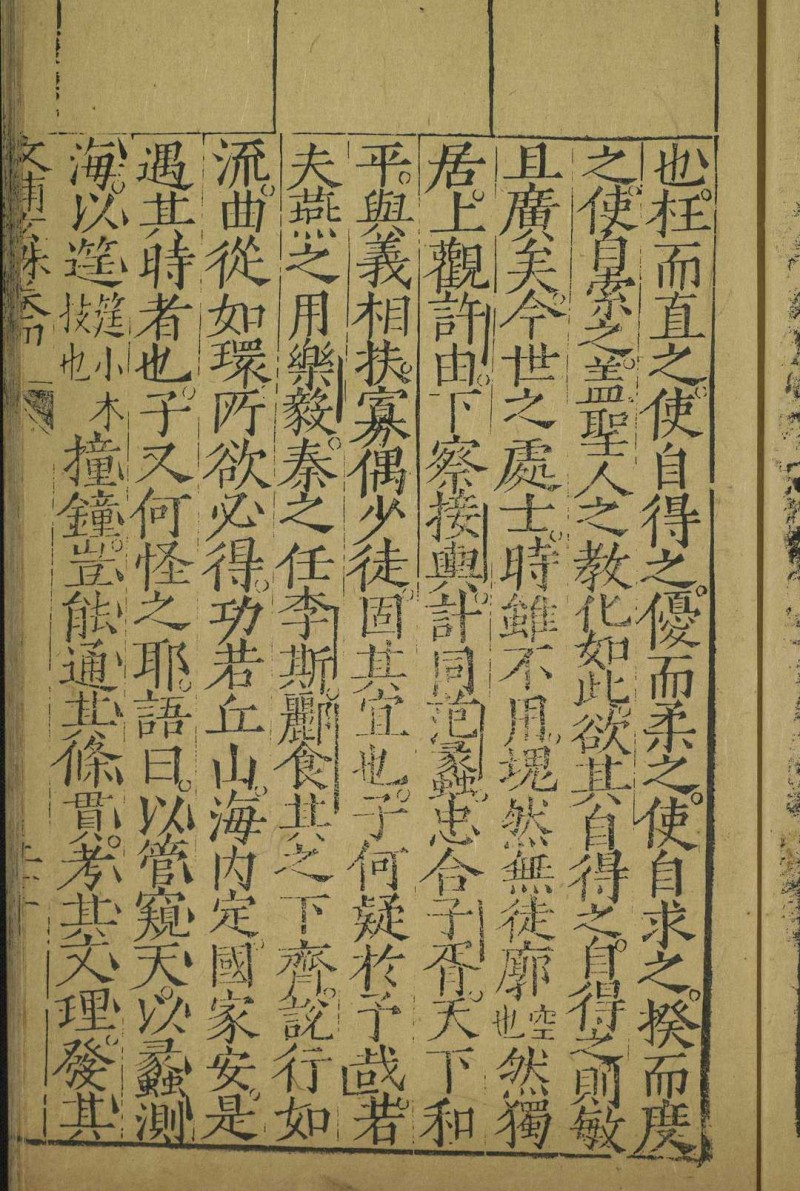 也枉而直之使自得之優而柔之使自求之揆而度
之使自索之盖聖人之教化如此欲其自得之自得之則敏
且廣矣今世之處士時雖不用塊然無徒廓空也然獨
居上觀許由下察接輿計同范蠡忠合子胥天下和
平與義相扶寡偶少徒固其宜也子何疑於予哉若
夫燕之用樂毅秦之任李斯酈食其之下齊說行如
流曲從如環所欲必得功若丘山海内定國家安是
遇其時者也子又何怪之耶語曰以管窺天以蠡測
海以筳筳小木技也撞鐘豈能通其條貫考其文理發其